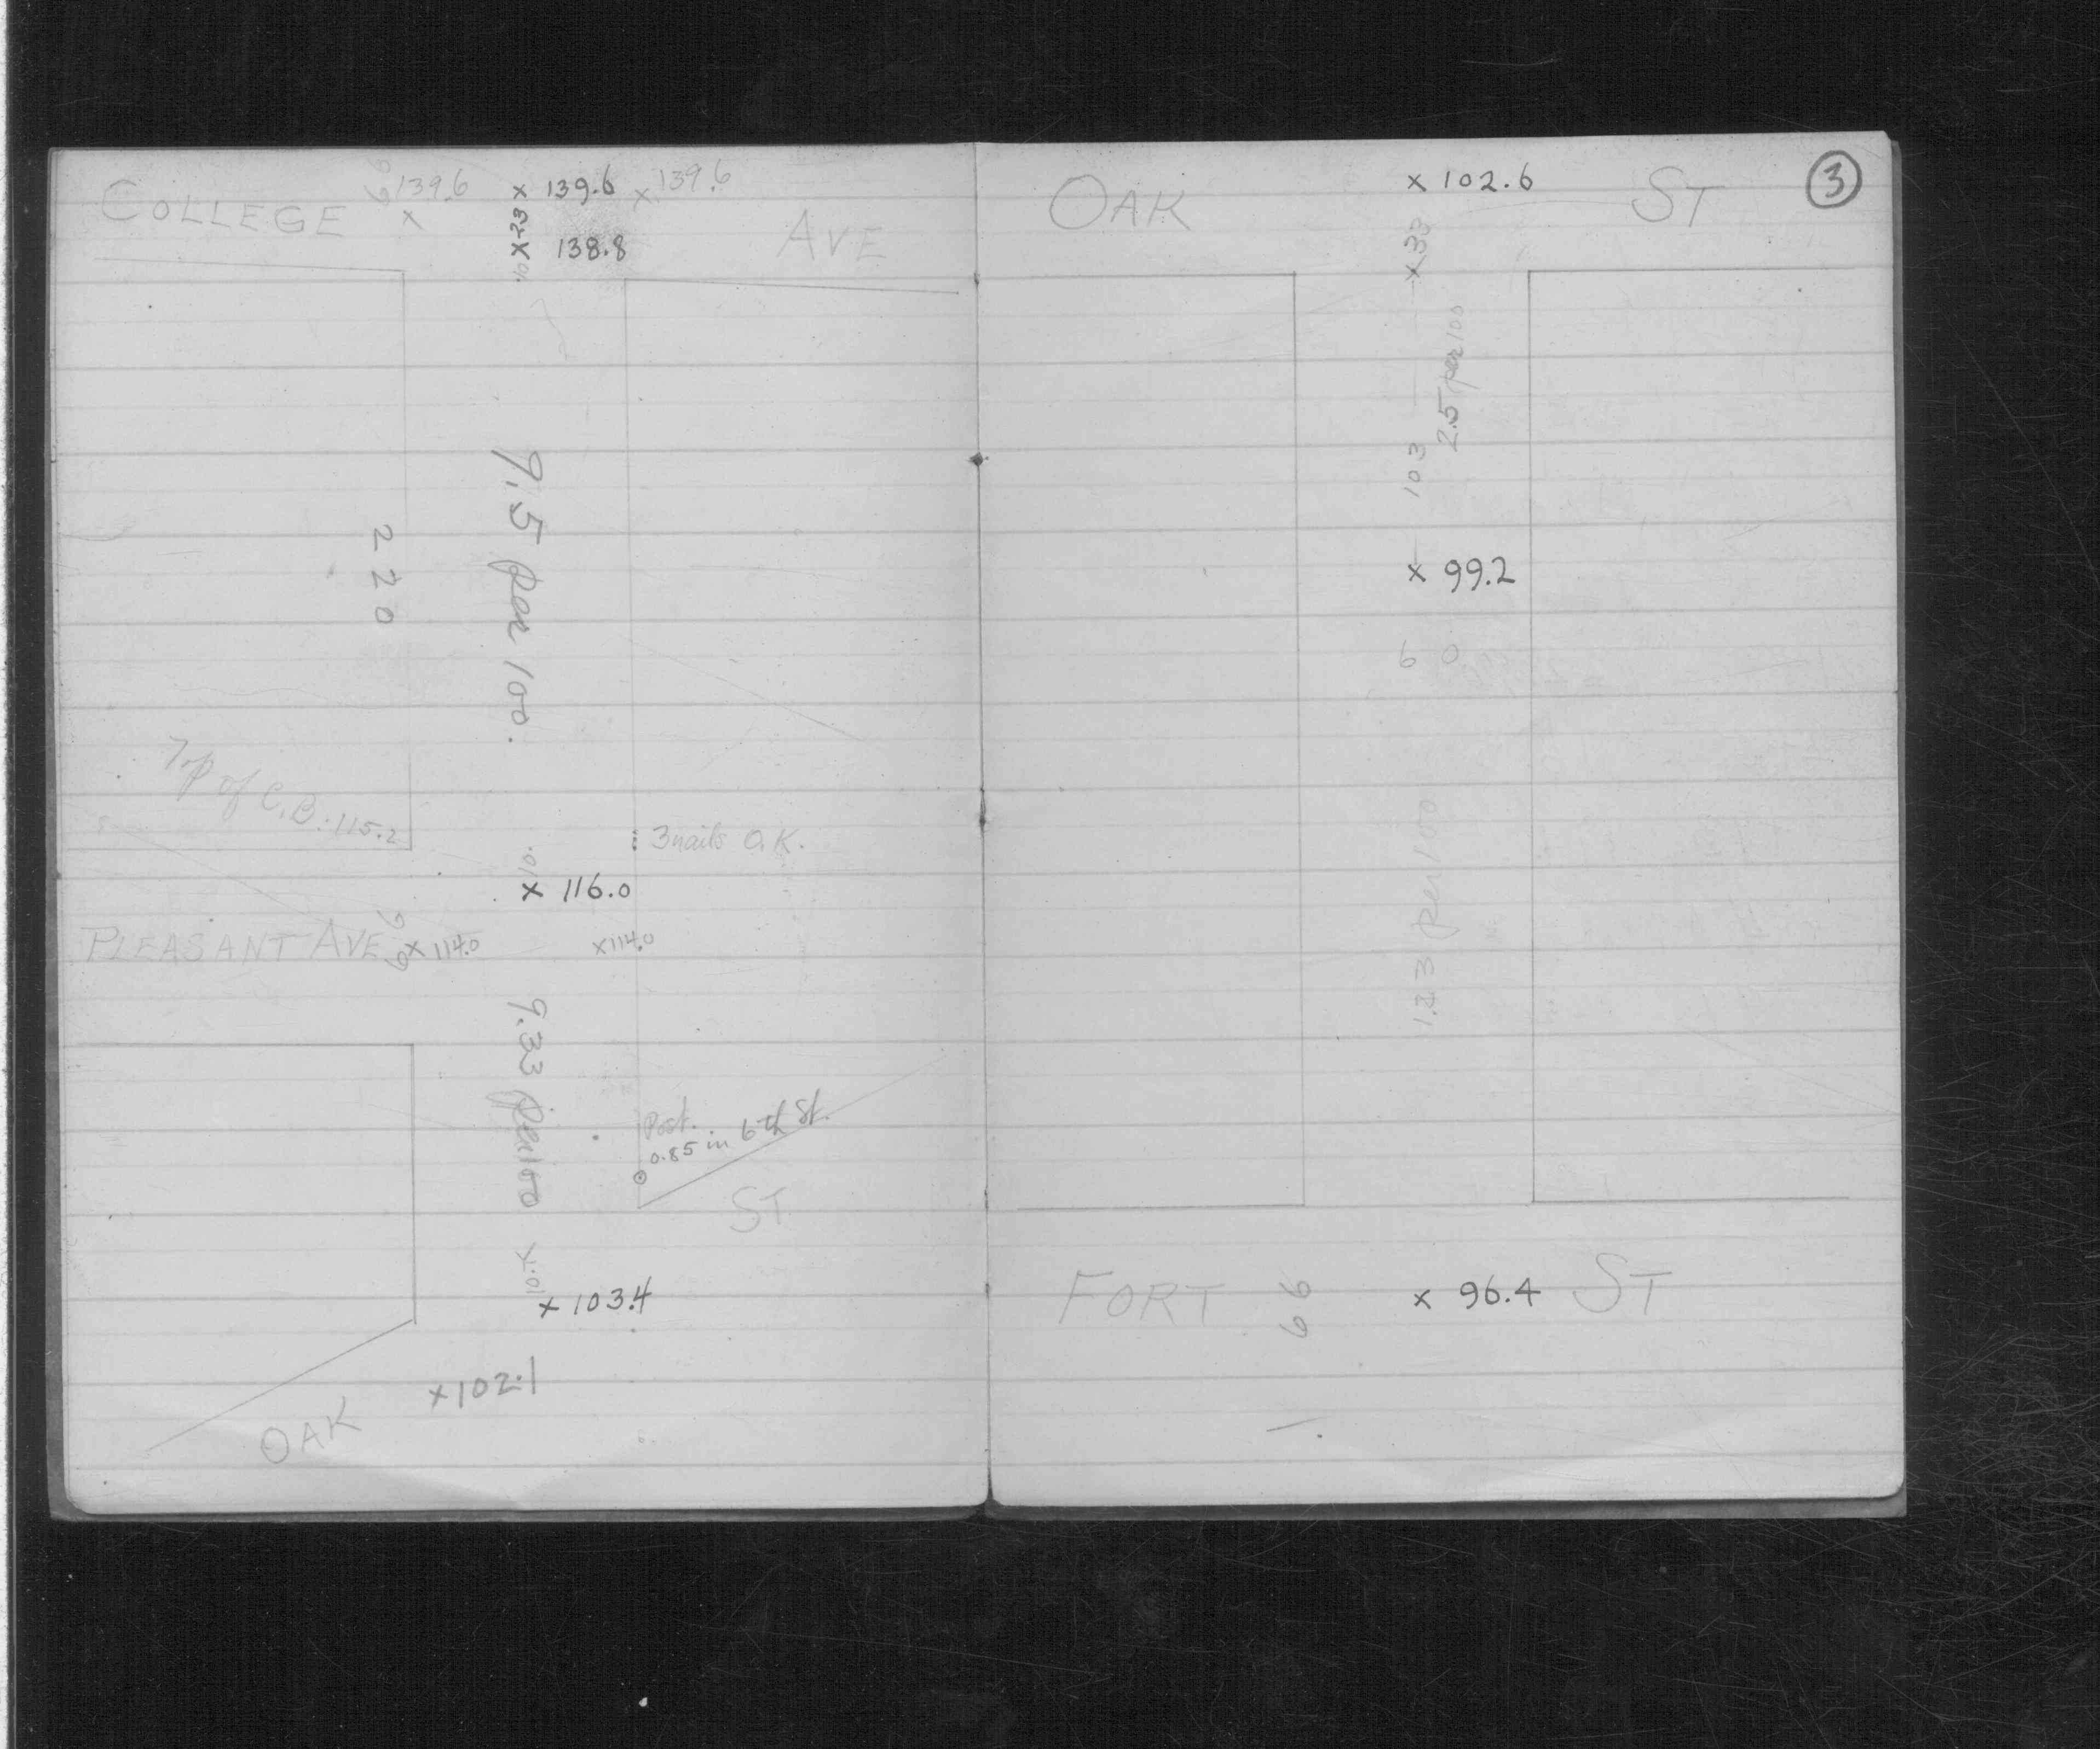 COLLEGE 66 139.6 x x 139.6 x 139.6 AVE
x 23 138.8
220
9.5 per 100.
Top of C.B. 115.2
3 nails O.K.
x 116.0
PLEASANT AVE 66 x 114.0 x 114.0
9.33 per 100
Post.
0.85 in 6th St.
ST
x 103.4
x 102.1
OAK
3
OAK x 102.6 ST
x 33
2.5 per 100
103
x 99.2
60
per 100
FORT 66 x 96.4 ST